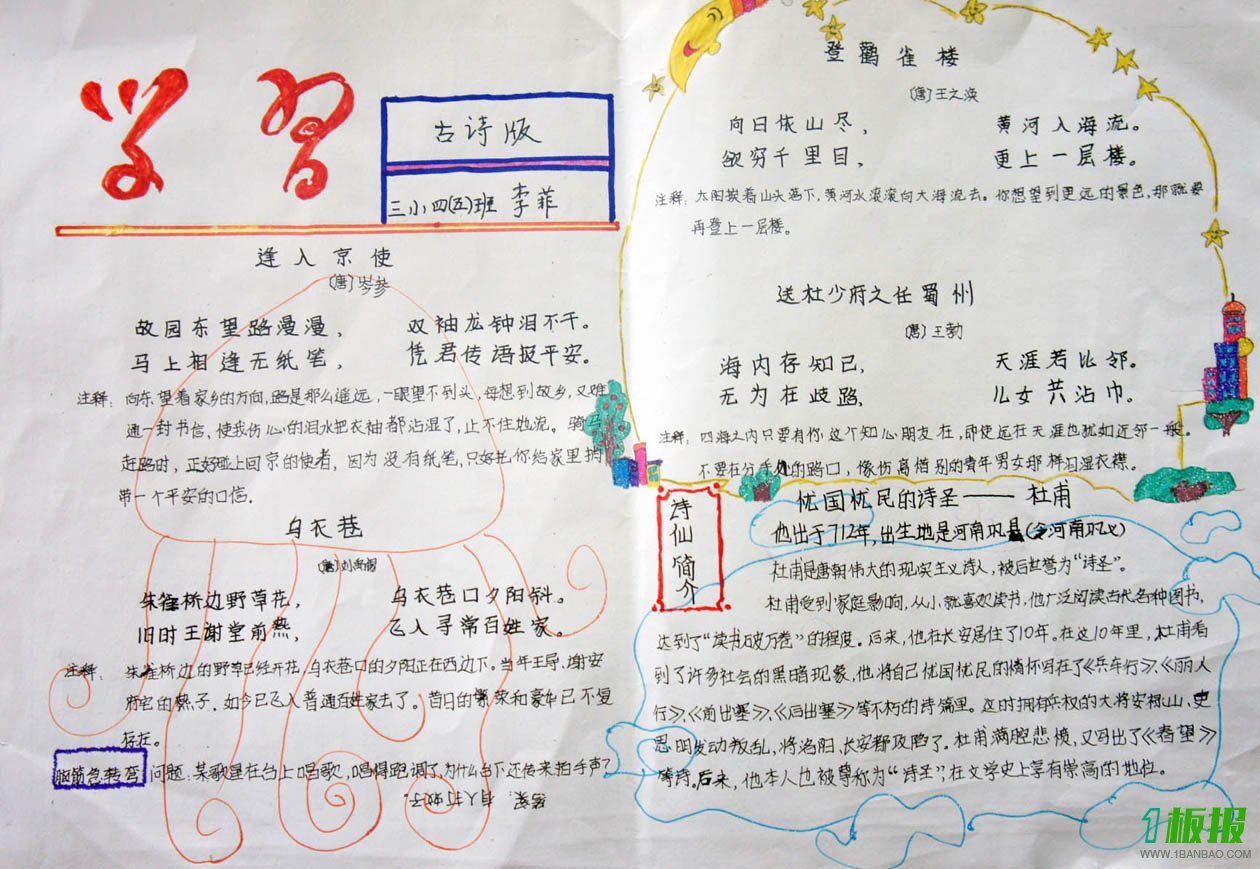 学习
古诗版
三小四(五)班 李菲
逢入京使
(唐)岑参
故园东望路漫漫， 双袖龙钟泪不干。
马上相逢无纸笔， 凭君传语报平安。
注释：向东望着家乡的方向，路是那么遥远，一眼望不到头，每想到故乡，又难
通一封书信、使我伤心的泪水把衣袖都沾湿了，止不住地流。骑马
赶路时，正好碰上回京的使者，因为没有纸笔，只好托你给家里捎
带一个平安的口信。
乌衣巷
(唐)刘禹锡
朱雀桥边野草花， 乌衣巷口夕阳斜。
旧时王谢堂前燕， 飞入寻常百姓家。
注释：朱雀桥边的野草已经开花，乌衣巷口的夕阳正在西边下。当年王导、谢安
府宅的燕子，如今已飞入普通百姓家去了。昔日的繁荣和豪华已不复
存在。
脑筋急转弯 问题：某歌星在台上唱歌，唱得跑调了，为什么台下还传来拍手声？
答案：有人打蚊子。
登鹳雀楼
(唐)王之涣
向日依山尽， 黄河入海流。
欲穷千里目， 更上一层楼。
注释：太阳挨着山头落下，黄河水滚滚向大海流去。你想望到更远的景色，那就要
再登上一层楼。
送杜少府之任蜀州
(唐)王勃
海内存知己， 天涯若比邻。
无为在歧路， 儿女共沾巾。
注释：四海之内只要有你这个知心朋友在，即使远在天涯也犹如近邻一般。
不要在分手处的路口，像伤离惜别的青年男女那样泪湿衣襟。
诗仙简介
忧国忧民的诗圣——杜甫
他出于712年，出生地是河南巩县(今河南巩义)
杜甫是唐朝伟大的现实主义诗人，被后世誉为“诗圣”。
杜甫受到家庭影响，从小就喜欢读书，他广泛阅读古代各种图书，
达到了“读书破万卷”的程度。后来，他在长安居住了10年。在这10年里，杜甫看
到了许多社会的黑暗现象，他将自己忧国忧民的情怀写在了《兵车行》、《丽人
行》、《前出塞》、《后出塞》等不朽的诗篇里。这时拥有兵权的大将安禄山、史
思明发动叛乱，将洛阳、长安都攻陷了。杜甫满腔悲愤，又写出了《春望》
等诗。后来，他本人也被尊称为“诗圣”，在文学史上享有崇高的地位。
1板报
WWW.1BANBAO.COM